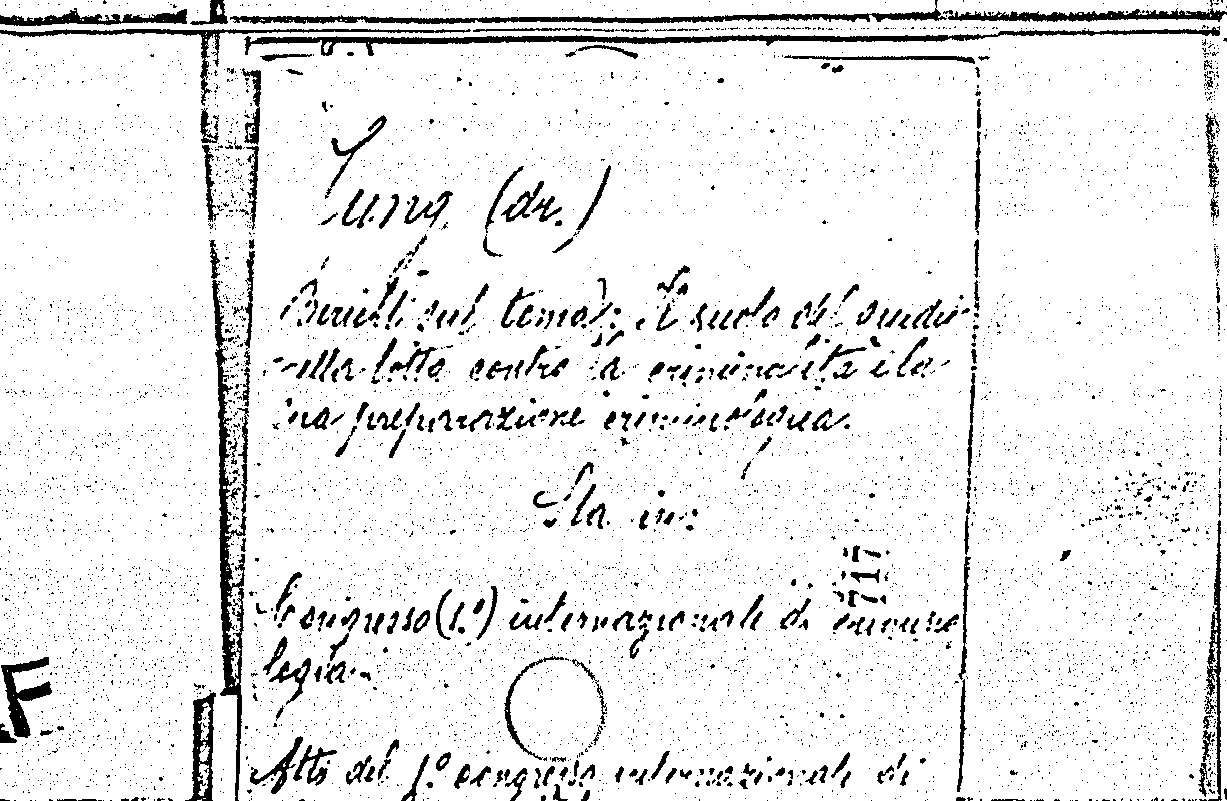 Jung (dr.)
sul tema: Il ruolo del giudice
nella lotta contro la criminalità e la
sua preparazione criminologica.
Sta in:
717
Congresso (1.º) internazionale di crimino
logia.
F
Atti del 1.º congresso internazionale di